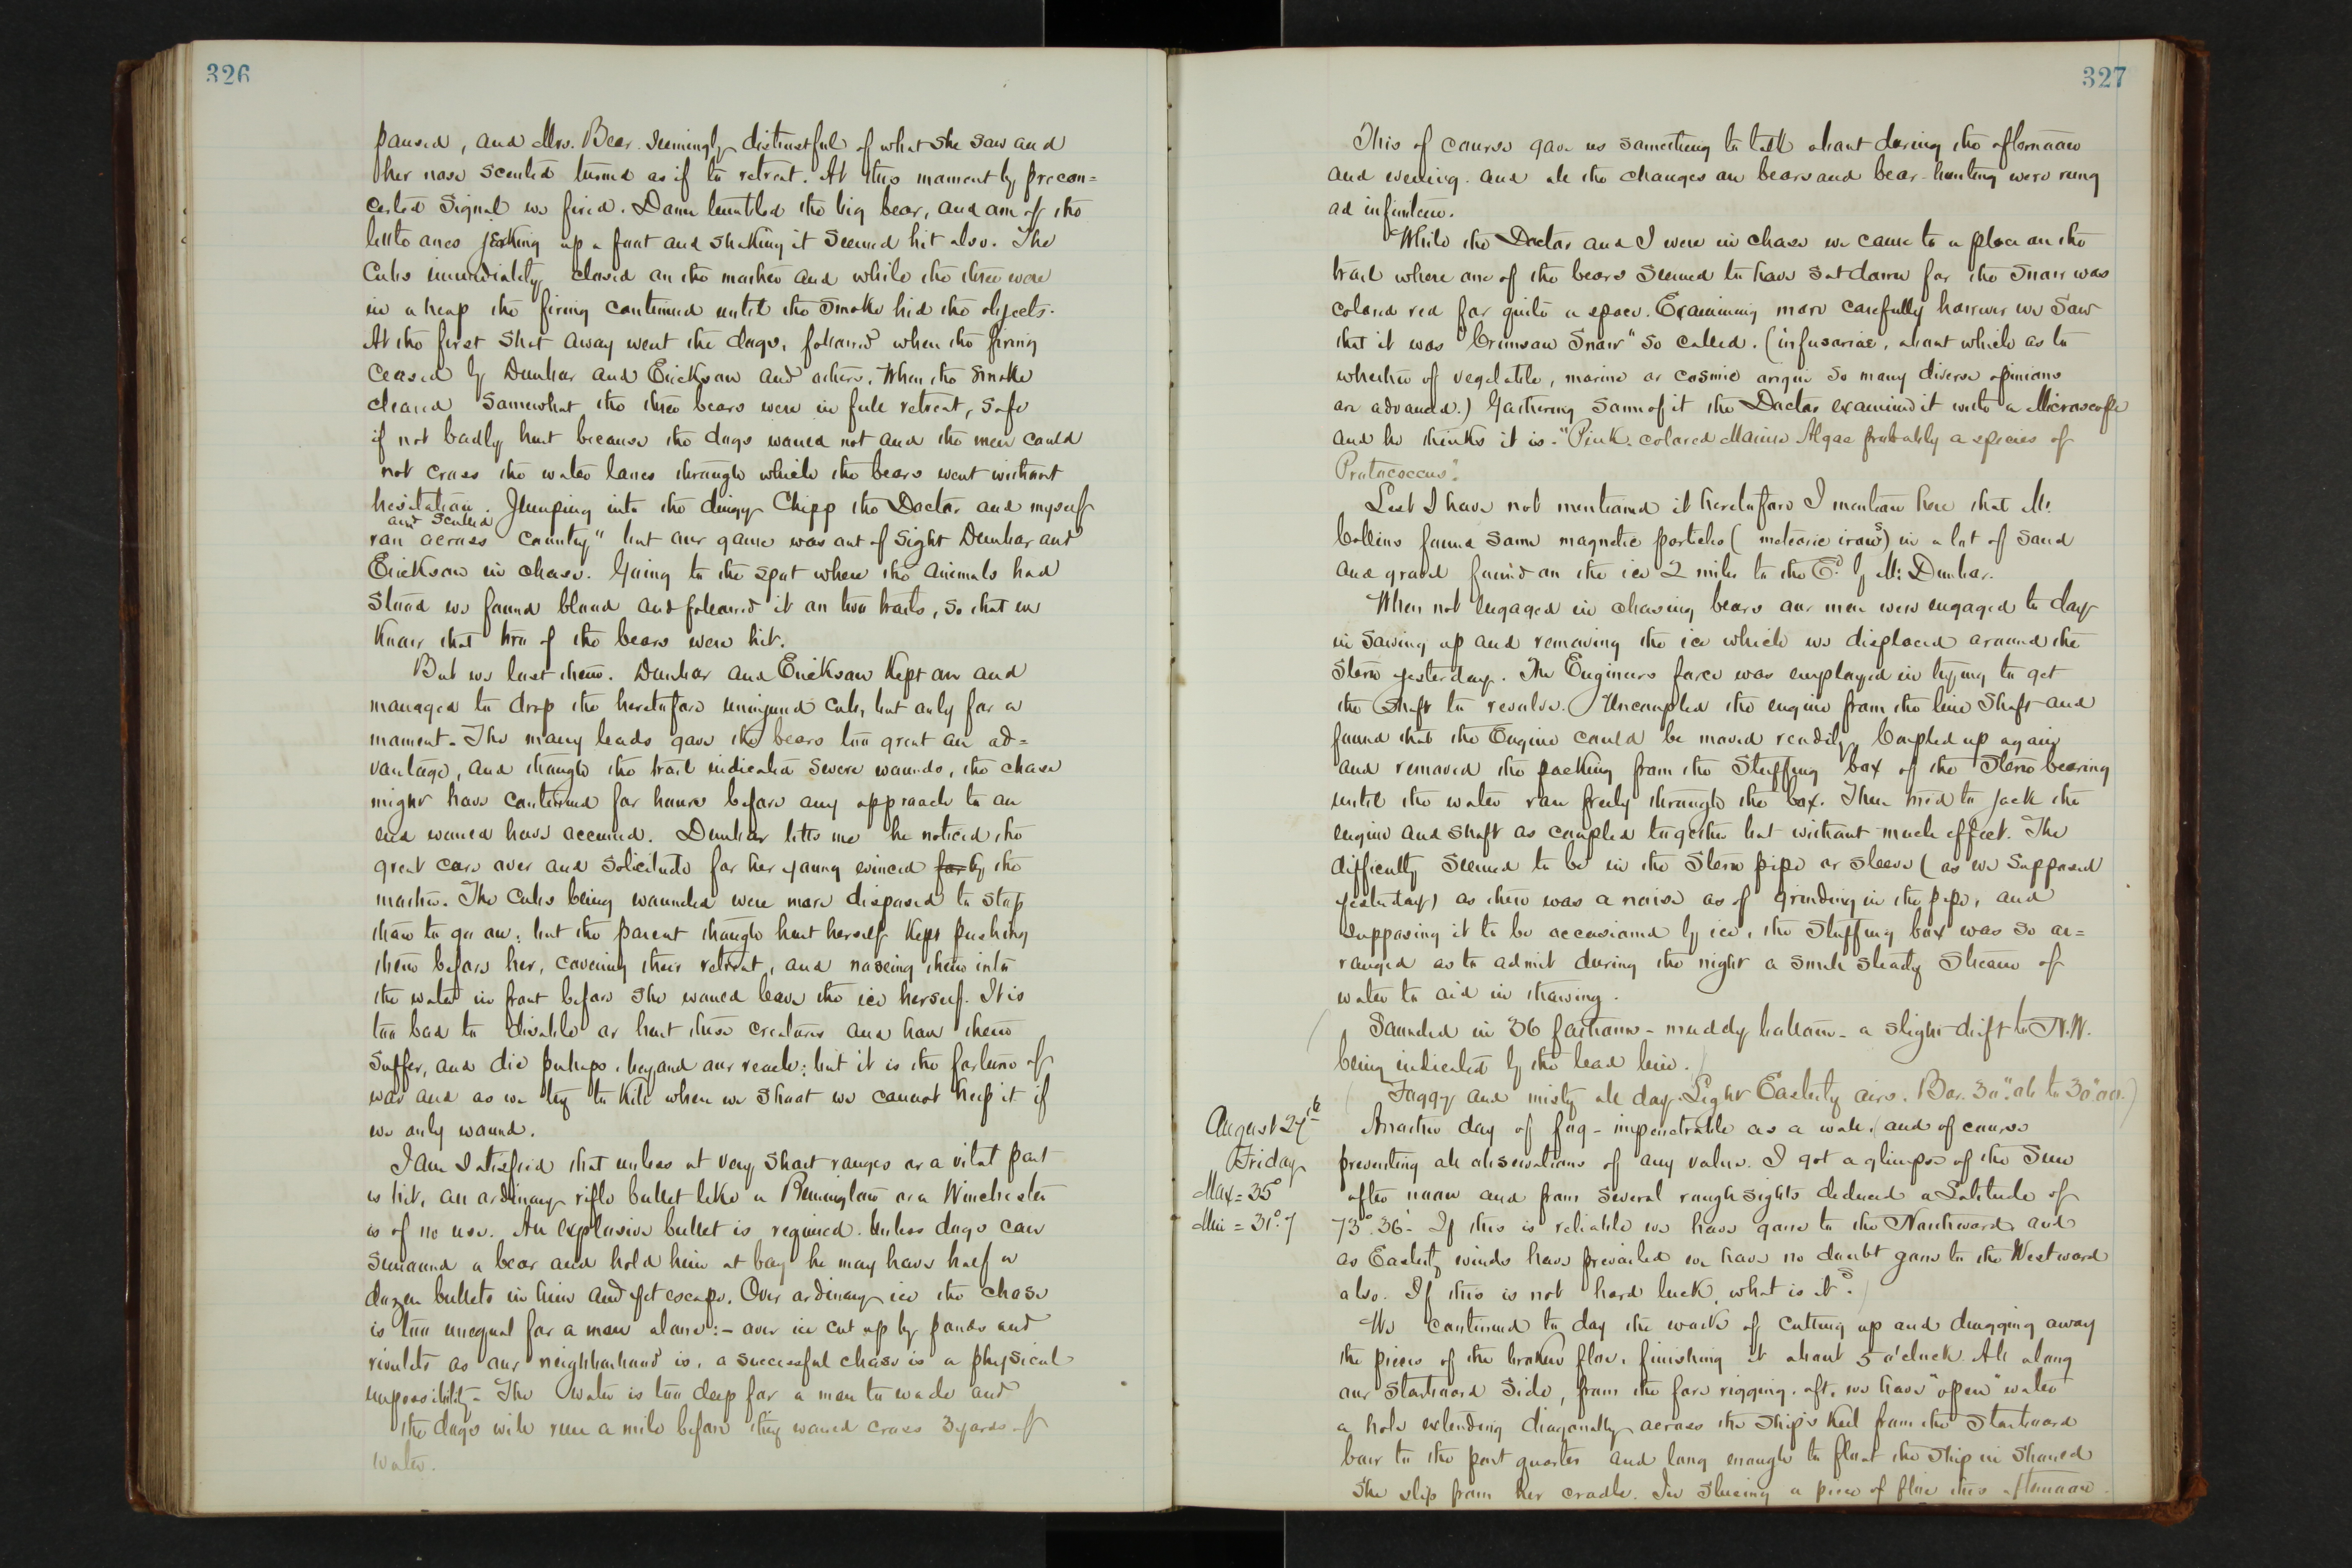 326
paused, and Mrs. Bear seemingly distrustful of what she saw and
her nose scented turned as if to retreat. At this moment by precon=
certed signal we fired. Down tumbled the big bear, and one of the
little ones jerking up a foot and shaking it seemed hit also. The
Cubs immediately closed on the mother and while the three were
in a heap the firing continued until the smoke hid the objects.
At the first shot away went the dogs, followed when the firing
ceased by Dunbar and Ericksen and others. When the smoke
cleared somewhat the three bears were in full retreat, safe
if not badly hurt because the dogs would not and the men could
not cross the water lanes through which the bears went without
hesitation. Jumping into the dingy Chipp the Doctor and myself
and sculled
ran across country" but our game was out of sight Dunbar and
Ericksen in chase. Going to the spot where the animals had
stood we found blood and followed it on two trails, so that we
know that two of the bears were hit.
But we lost them. Dunbar and Ericksen kept on and
managed to drop the heretofore uninjured cub, but only for a
moment. The many leads gave the bears too great an ad=
vantage, and though the trail indicated severe wounds, the chase
might have continued for hours before any approach to an
end would have occurred. Dunbar tells me he noticed the
great care over and solicitude for her young evinced for by the
mother. The Cubs being wounded were more disposed to stop
than to go on; but the parent though hurt herself kept pushing
them before her, covering their retreat, and noseing them into
the water in front before she would leave the ice herself. It is
too bad to disable or hurt these creatures and have them
suffer, and die perhaps, beyond our reach; but it is the fortune of
war and as we try to kill when we shoot we cannot help it if
we only wound.
I am satisfied that unless at very short ranges or a vital part
is hit, an ordinary rifle bullet like a Remington or a Winchester
is of no use. An explosive bullet is required. Unless dogs can
surround a bear and hold him at bay he may have half a
dozen bullets in him and yet escape. Over ordinary ice the chase
is too unequal for a man alone:- over ice cut up by ponds and
rivulets as our neighborhood is, a successful chase is a physical
impossibility. The water is too deep for a man to wade and
the dogs will run a mile before they would cross 3 yards of
water.
327
This of course gave us something to talk about during the afternoon
and evening. and all the changes on bears and bear-hunting were rung
ad infinitum.
While the Doctor and I were in chase we came to a place on the
trail where one of the bears seemed to have sat down for the snow was
colored red for quite a space. Examining more carefully however we saw
that it was "Crimson Snow" so called. (infusoriae, about which as to
whether of vegetable, marine or cosmic origin so many diverse opinions
are advanced.) Gathering some of it the Doctor examined it with a Microscope
and he thinks it is. "Pink colored Marine Algae probably a species of
Protococcus".
Lest I have not mentioned it heretofore I mention here that Mr.
Collins found some magnetic particles (meteoric irons) in a lot of sand
and gravel found on the ice 2 miles to the Ed. by Mr. Dunbar.
When not engaged in chasing bears our men were engaged to day
in sawing up and removing the ice which we displaced around the
stern yesterday. The Engineers force was employed in trying to get
the shaft to revolve. Uncoupled the engine from the line shaft and
found that the Engine could be moved readily. Coupled up again
and removed the packing from the stuffing box of the stern bearing
until the water ran freely through the box. Then tried to jack the
engine and shaft as coupled together but without much effect. The
difficulty seemed to be in the stern pipe or sleeve (as we supposed
yesterday) as there was a noise as of grinding in the pipe, and
supposing it to be occasioned by ice, the stuffing box was so ar=
ranged as to admit during the night a small steady stream of
water to aid in thawing.
Sounded in 36 fathoms - muddy bottom - a slight drift to N.W.
being indicated by the lead line.
(Foggy and misty all day. Light Easterly airs. Bar. 30". to 30".)
August 27th
Friday
Max = 35°
Min = 31°.7
Another day of fog - impenetrable as a wall, (and of course
preventing all observations of any value. I got a glimpse of the Sun
after noon and from several rough sights deduced a Latitude of
73°.36'. If this is reliable we have gone to the Northward and
as Easterly winds have prevailed we have no doubt gone to the Westward
also. If this is not hard luck, what is it?)
We continued to day the work of cutting up and dragging away
the pieces of the broken floe, finishing it about 5 o'clock. All along
our starboard side, from the fore rigging aft, we have "open" water
a hole extending diagonally across the ship's keel from the starboard
bow to the port quarter and long enough to float the ship in should
she slip from her cradle. In sluicing a piece of floe this afternoon